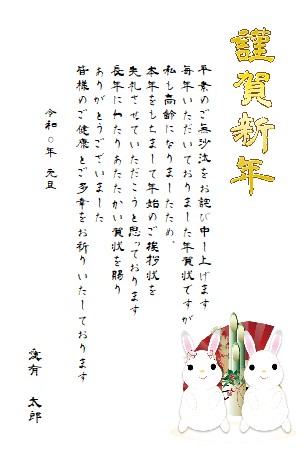 謹賀新年
平素のご無沙汰をお詫び申し上げます
毎年いただいておりました年賀状ですが
私も高齢になりましたため、
本年をもちまして年始のご挨拶状を
失礼させていただこうと思っております
長年にわたりあたたかい賀状を賜り
ありがとうございました
皆様のご健康とご多幸をお祈りいたしております
令和〇年 元旦
愛有 太郎